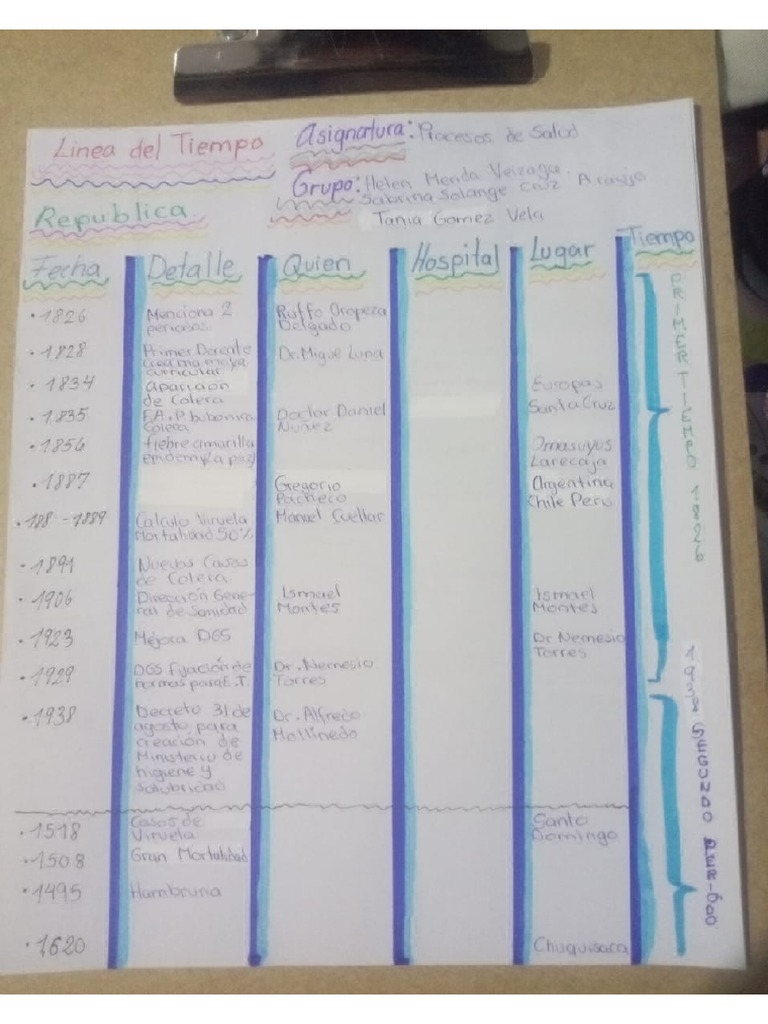 Linea del Tiempo
Asignatura: Procesos de Salud
Grupo: Helen Merida Veizaga
Sabrina Solange Cruz Araujo
Tania Gomez Vela
Republica
Fecha Detalle Quien Hospital Lugar Tiempo
·1826 Menciona 2 Ruffo Oropeza
periodos Delgado
·1828 Primer Dr. Miguel Luna
curricular
·1834 aparicion Europas
de Colera Santa Cruz
·1835 bubonica Doctor Daniel
Colera Nuñez
·1856 fiebre amarilla Omasuyos
epidemy(a paz) Larecaja
·1887 Gregorio Argentina
Pacheco Chile Peru
·188 -1889 Calculo Viruela Manuel Cuellar
Mortalidad 50%
·1891 Nuevos Casos
de Colera
·1906 Dirección Gene- Ismael Ismael
ral de Sanidad Montes Montes
·1923 Mejora DGS Dr Nemesio
Torres
·1929 DGS Fijación de Dr. Nemesio
normas para E.T. Torres
·1938 Decreto 31 de Dr. Alfredo
agosto para Mollinedo
creación de
Ministerio de
higiene y
salubridad
·1518 Casos de Santo
Viruela Domingo
·1508 Gran Mortalidad
·1495 Hambruna
·1620 Chuquisaca
PRIMER TIEMPO 1826
1938 SEGUNDO